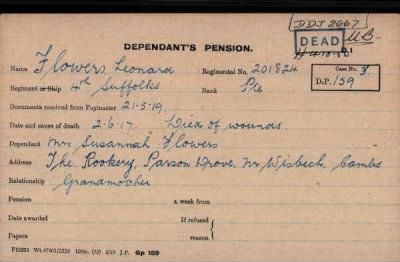 DDJ 2667
DEPENDANT'S PENSION.
DEAD
M.B.
D.1
Name Flowers Leonard Regimental No. 201824
Case No. 8
D.P./159
Regiment or Ship 4th Suffolks Rank Pte
Documents received from Paymaster 21-5-19.
Date and cause of death 2-6-17 Died of wounds.
Dependant Mrs Susannah Flowers
Address The Rookery, Parson Drove, Nr Wisbech, Cambs
Relationship Grandmother
Pension a week from
Date awarded If refused
Papers reason
J.P. Gp. 159